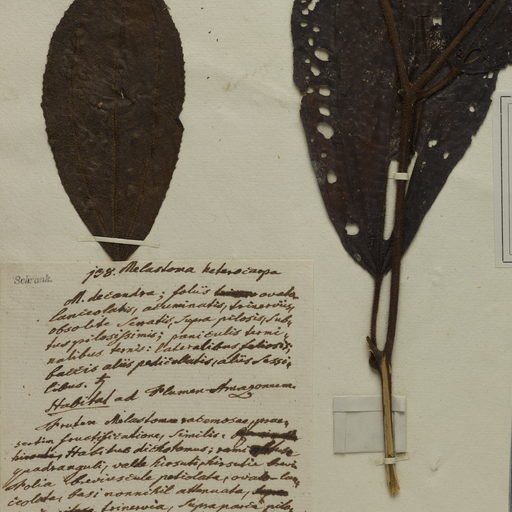 Schrank.
138. Melastoma heterocarpa
M. decandra; foliis ovato
lanceolatis, acuminatis, trinerviis,
obsolete serratis, supra pilosis, sub-
tus pilosissimis; paniculis termi-
nalibus ternis: lateralibus foliosis;
baccis aliis pedicellatis, aliis sessi-
libus. ♄
Habitat ad Flumen Amazonum.
Frutex Melastomae racemosae, prae-
sertim fructificatione, similis.
Habitus dichotomus; rami
quadranguli, valde hirsuti; hirsutie brevi
Folia breviuscule petiolata, ovato-lan-
ceolata, basi nonnihil attenuata,
trinervia, supra parum pilo-